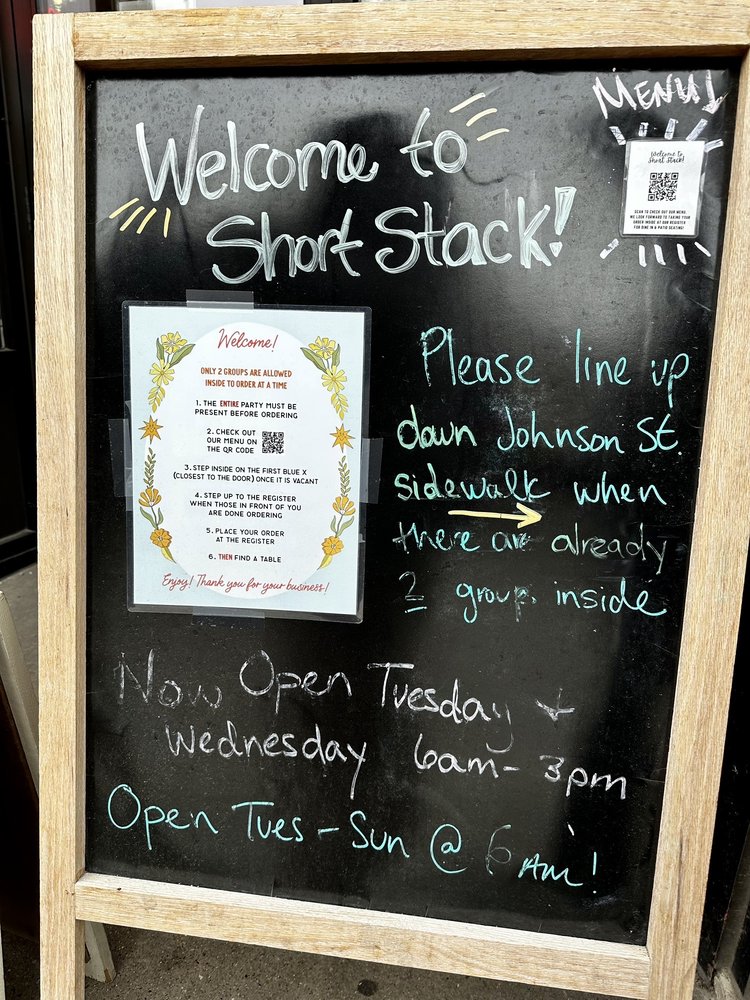 MENU!
Welcome to
Short Stack!
Welcome to
Short Stack!
SCAN TO CHECK OUT OUR MENU
WE LOOK FORWARD TO TAKING YOUR
ORDER INSIDE AT OUR REGISTER
FOR DINE IN & PATIO SEATING!
Welcome!
ONLY 2 GROUPS ARE ALLOWED
INSIDE TO ORDER AT A TIME
1. THE ENTIRE PARTY MUST BE
PRESENT BEFORE ORDERING
2. CHECK OUT
OUR MENU ON
THE QR CODE
3. STEP INSIDE ON THE FIRST BLUE X
(CLOSEST TO THE DOOR) ONCE IT IS VACANT
4. STEP UP TO THE REGISTER
WHEN THOSE IN FRONT OF YOU
ARE DONE ORDERING
5. PLACE YOUR ORDER
AT THE REGISTER
6. THEN FIND A TABLE
Enjoy! Thank you for your business!
Please line up
down Johnson St.
sidewalk when
there are already
2 group. inside
Now Open Tuesday +
Wednesday 6am - 3pm
Open Tues - Sun @ 6 AM!